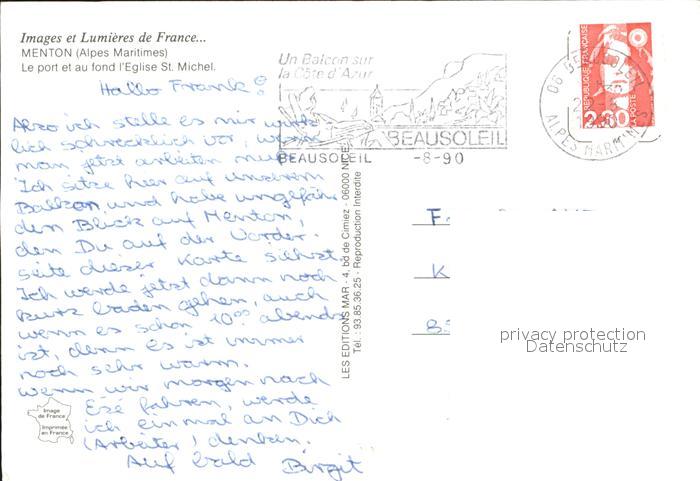 Images et Lumières de France...
MENTON (Alpes Maritimes)
Le port et au fond l'Eglise St. Michel.
Hallo Frank!
Also ich stelle es mir wirk-
lich schrecklich vor, wenn
man jetzt arbeiten muß.
Ich sitze hier auf unserem
Balkon und habe ungefähr
den Blick auf Menton,
den Du auf der Vorder-
seite dieser Karte siehst.
Ich werde jetzt dann noch
kurz baden gehen, auch
wenn es schon 10⁰⁰ abends
ist, denn es ist immer
noch sehr warm.
Wenn wir morgen nach
Èze fahren, werde
ich einmal an Dich
(Arbeiter) denken.
Auf bald Birgit
Image
de France
Imprimée
en France
Un Balcon sur
la Côte d'Azur
BEAUSOLEIL
BEAUSOLEIL -8-90
LES EDITIONS MAR - 4, bd de Cimiez - 06000 NICE
Tél. : 93.85.36.25 - Reproduction Interdite
REPUBLIQUE FRANÇAISE
LA POSTE
06
ALPES MARITIMES
F.
K
B
privacy protection
Datenschutz